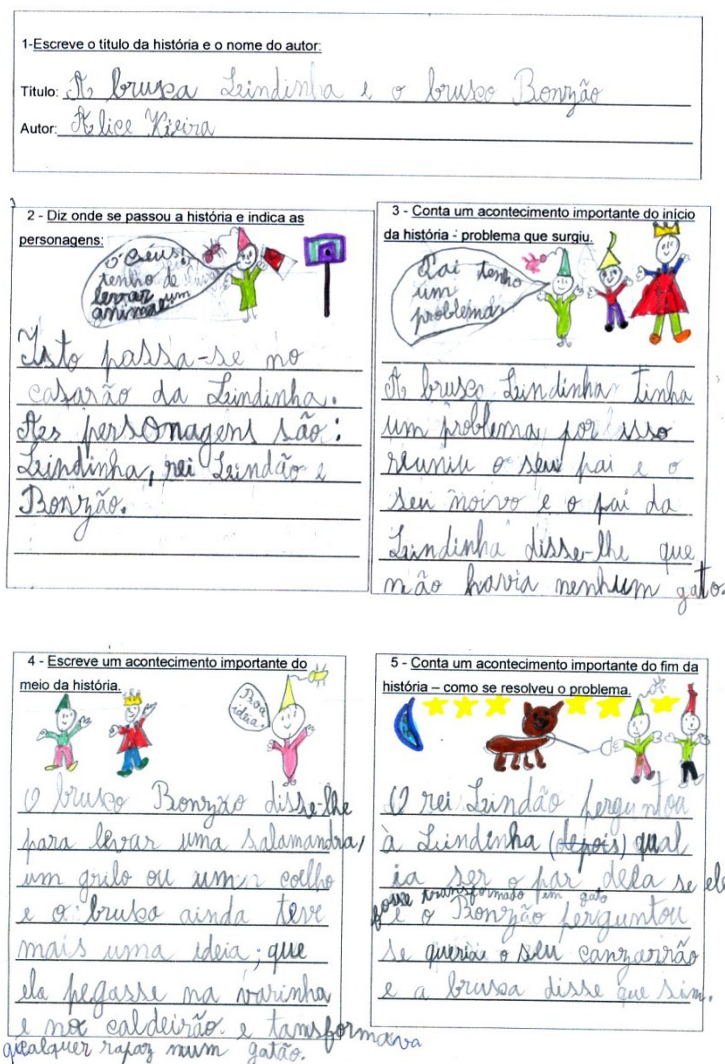 1-Escreve o título da história e o nome do autor:
Título: A bruxa Lindinha e o bruxo Bonzão
Autor: Alice Vieira
2 - Diz onde se passou a história e indica as
personagens:
Ó céus,
tenho de
levar um
animal
Isto passa-se no
casarão da Lindinha.
As personagens são:
Lindinha, rei Lindão e
Bonzão.
3 - Conta um acontecimento importante do início
da história - problema que surgiu.
Pai tenho
um
problema
A bruxa Lindinha tinha
um problema por isso
reuniu o seu pai e o
seu noivo e o pai da
Lindinha disse-lhe que
não havia nenhum gato.
4 - Escreve um acontecimento importante do
meio da história.
Boa
ideia!
O bruxo Bonzão disse-lhe
para levar uma salamandra,
um grilo ou um coelho
e o bruxo ainda teve
mais uma ideia; que
ela pegasse na varinha
e no caldeirão e tansformava
qualquer rapaz num gatão.
5 - Conta um acontecimento importante do fim da
história – como se resolveu o problema.
O rei Lindão perguntou
à Lindinha (depois) qual
ia ser o par dela se ele
fosse transformado em gato
e o Bonzão perguntou
se queria o seu canzarrão
e a bruxa disse que sim.